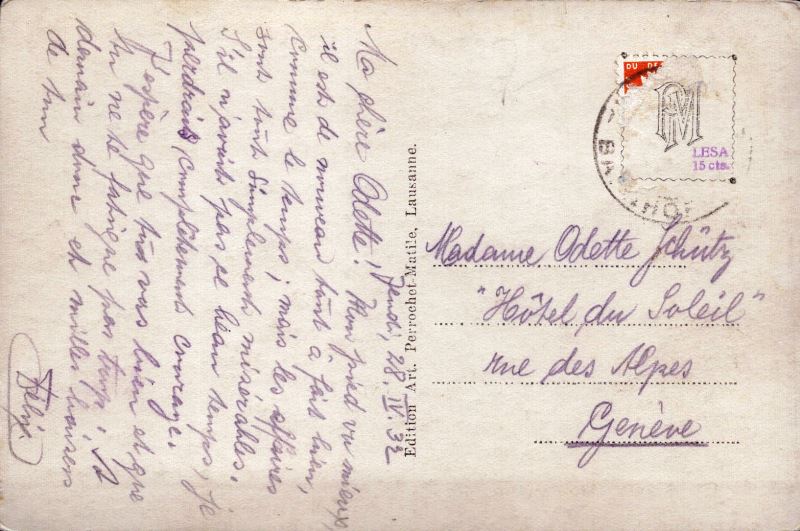 Jeudi, 28. IV. 32
Ma chère Odette! Mon pied va mieux,
il est de nouveau tout à fait bien,
comme le temps; mais les affaires
sont tout simplement misérables.
S'il n'avait pas ce beau temps, je
perdrais complètement courage.
J'espère que tu vas bien et que
tu ne te fatigue pas trop. A
demain donc et milles baisers
de ton
Félix
Edition Art. Perrochet-Matile, Lausanne.
DU DE
PM
LESA
15 cts.
Madame Odette Schütz
"Hôtel du Soleil"
rue des Alpes
Genève